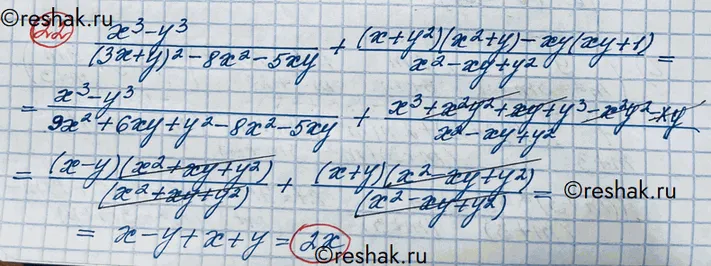 reshak.ru
22 (x³-y³)/((3x+y)²-8x²-5xy) + ((x+y²)(x²+y)-xy(xy+1))/(x²-xy+y²) =
= (x³-y³)/(9x²+6xy+y²-8x²-5xy) + (x³+x²y²+xy+y³-x²y²-xy)/(x²-xy+y²)
= ((x-y)(x²+xy+y²))/((x²+xy+y²)) + ((x+y)(x²-xy+y²))/((x²-xy+y²)) =
= x-y+x+y = 2x
©reshak.ru
reshak.ru